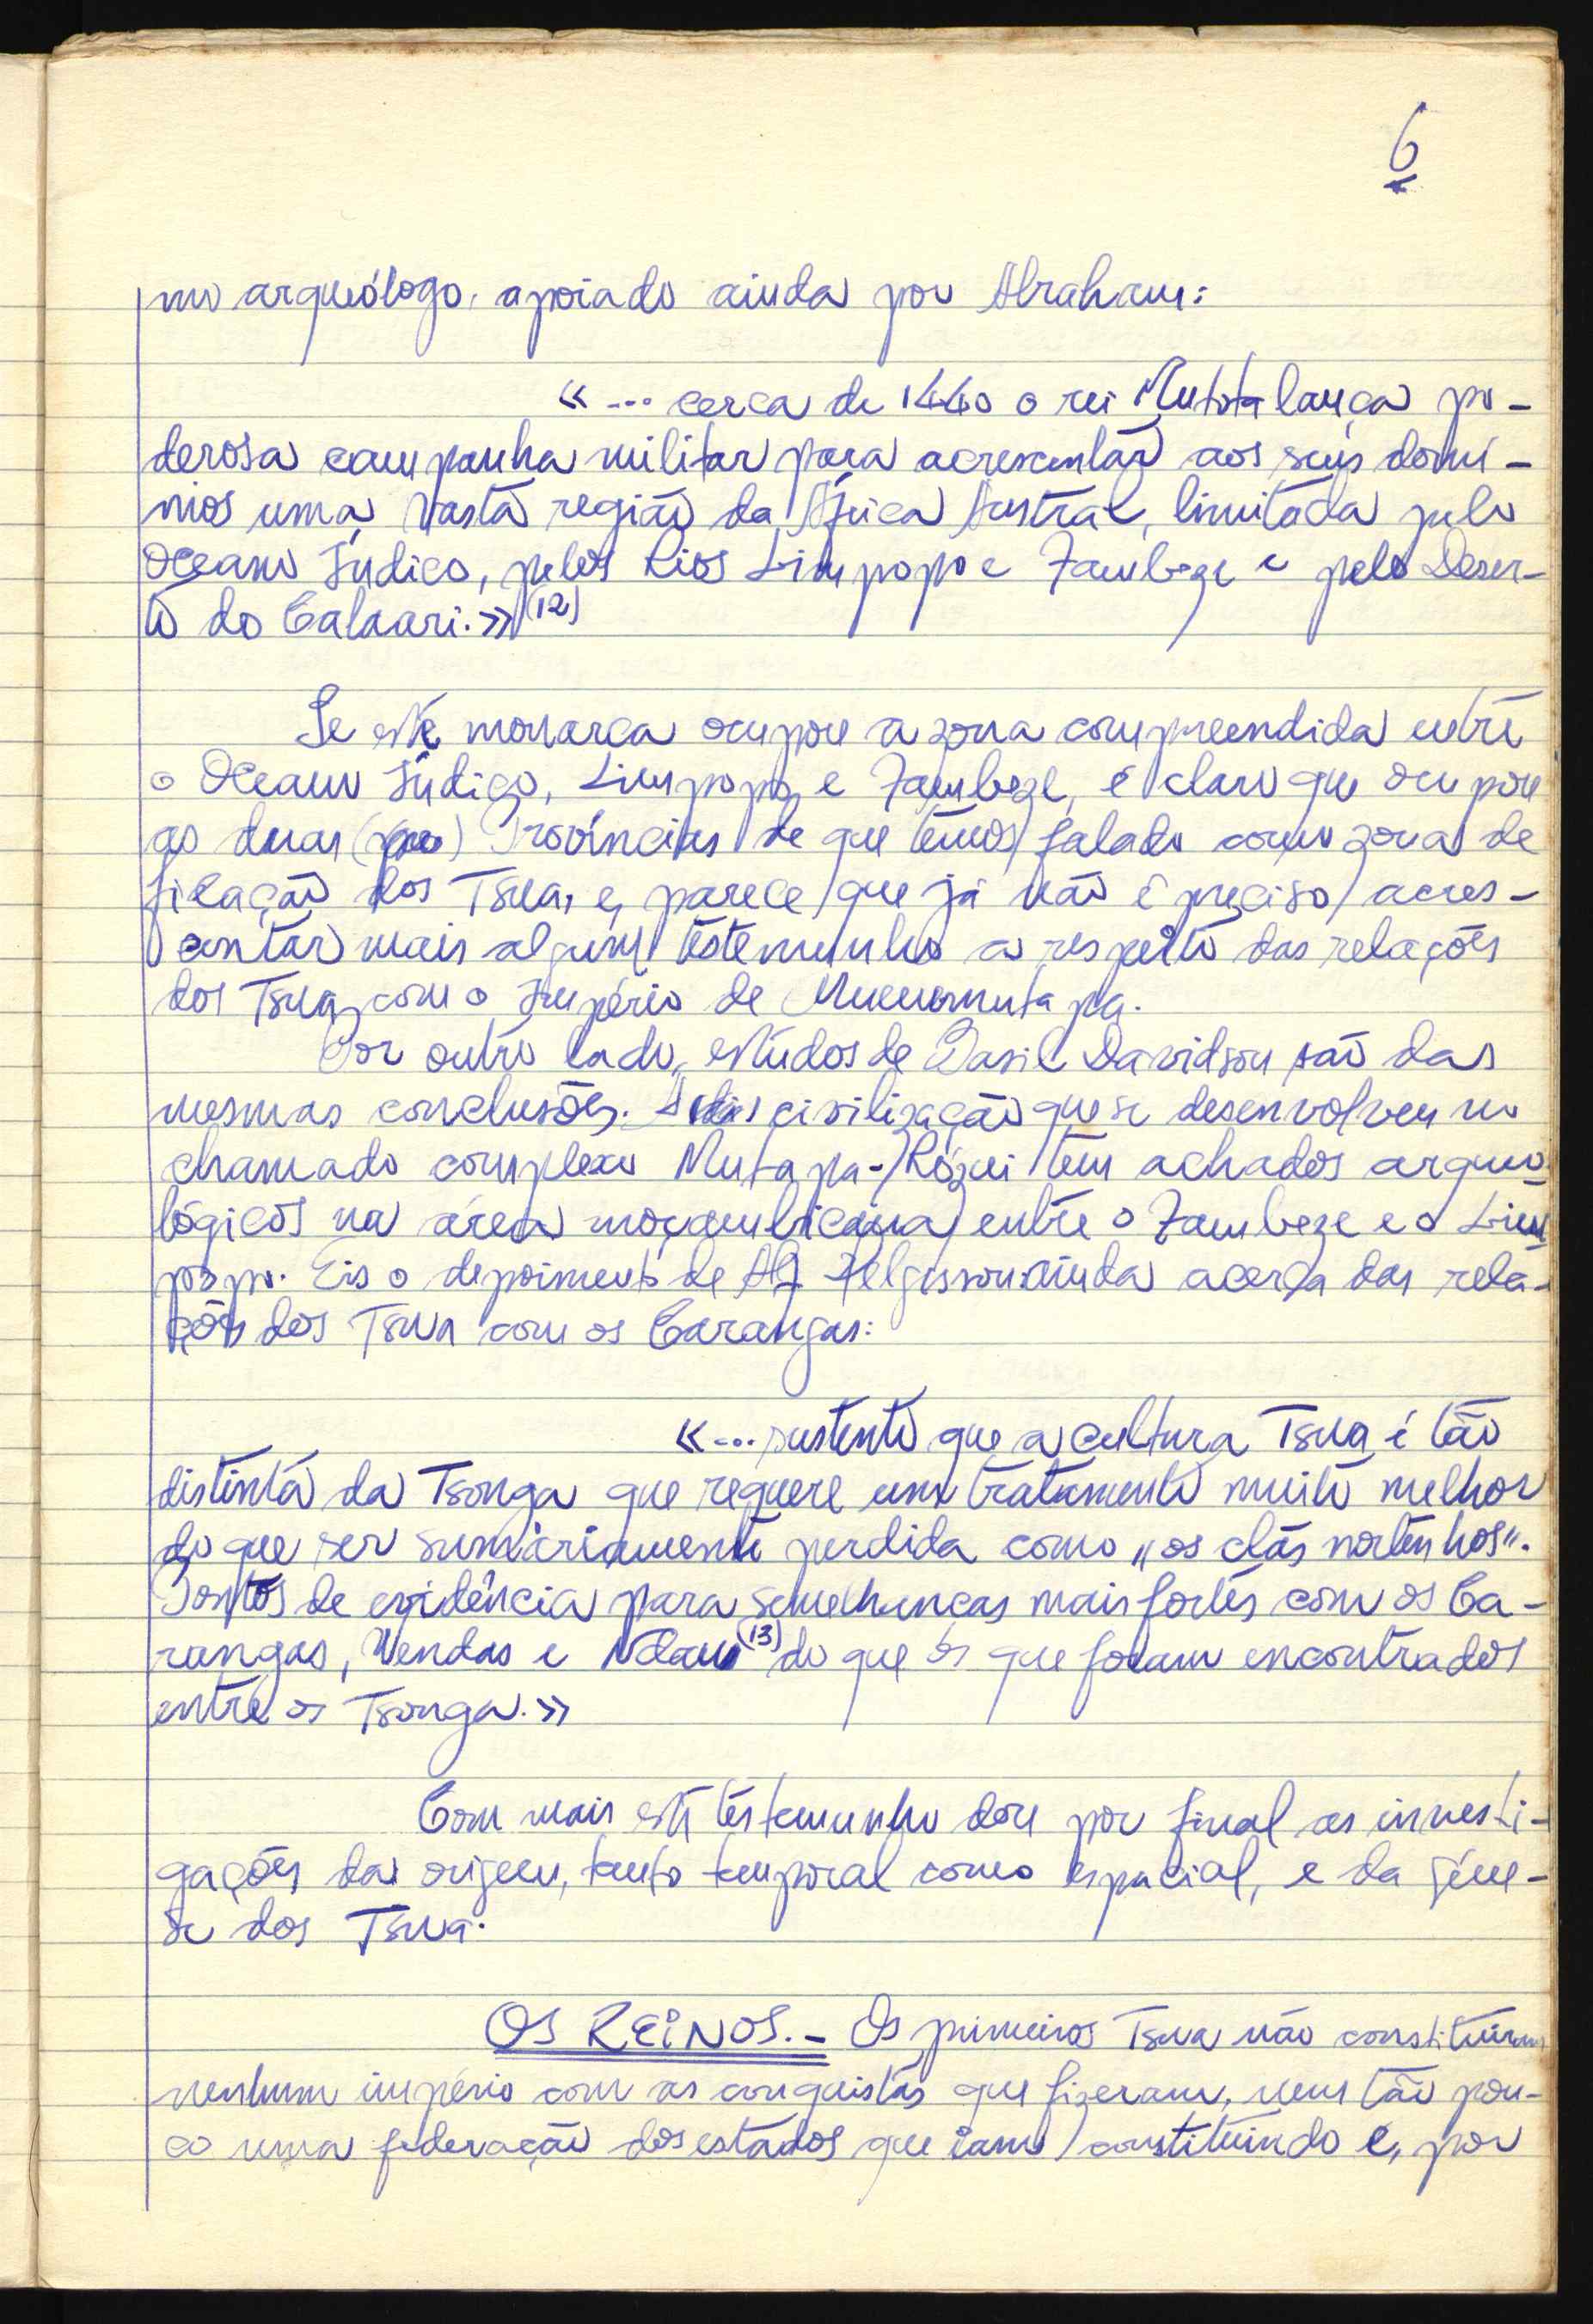 6
mo arqueólogo, apoiado ainda por Abraham:
«... cerca de 1440 o rei Mutota lança po-
derosa campanha militar para acrescentar aos seus domí-
nios uma vasta região da África Austral, limitada pelo
Oceano Índico, pelos Rios Limpopo e Zambeze e pelo Deser-
to do Calaari.»(12)
Se este monarca ocupou a zona compreendida entre
o Oceano Índico, Limpopo e Zambeze, é claro que ocupou
as duas Províncias de que temos falado como zona de
fixação dos Tswa, e, parece que já não é preciso acres-
centar mais algum testemunho a respeito das relações
dos Tswa com o Império de Muenemutapa.
Por outro lado, estudos de Basil Davidson são das
mesmas conclusões. A civilização que se desenvolveu no
chamado complexo Mutapa-Rózui tem achados arqueo-
lógicos na área moçambicana entre o Zambeze e o Lim-
popo. Eis o depoimento de Alf Helgesson ainda acerca das rela-
ções dos Tswa com os Carangas:
«... sustento que a cultura Tswa é tão
distinta da Tsonga que requere um tratamento muito melhor
do que ser sumàriamente perdida como "os clãs nortenhos".
Pontos de evidência para semelhanças mais fortes com os Ca-
rangas, Vendas e Ndau(13) do que os que foram encontrados
entre os Tsonga.»
Com mais este testemunho dou por final as investi-
gações da origem, tanto temporal como espacial, e da géne-
se dos Tswa.
OS REINOS.- Os primeiros Tswa não constituíram
nenhum império com as conquistas que fizeram, nem tão pou-
co uma federação dos estados que iam constituindo e, por